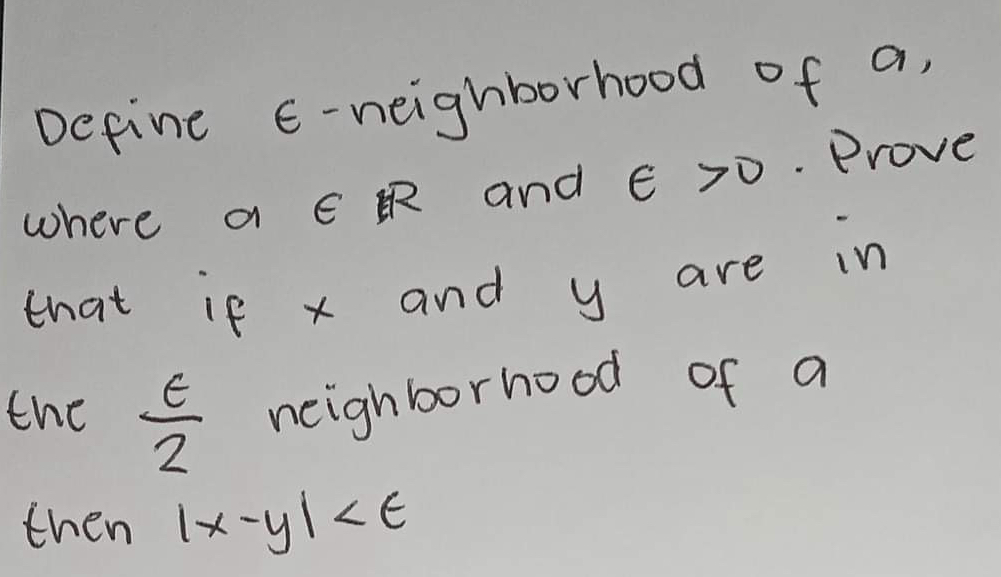 Define ε-neighborhood of a,
where a ∈ ℝ and ε >0. Prove
that if x and y are in
the ε/2 neighborhood of a
then |x-y| < ε